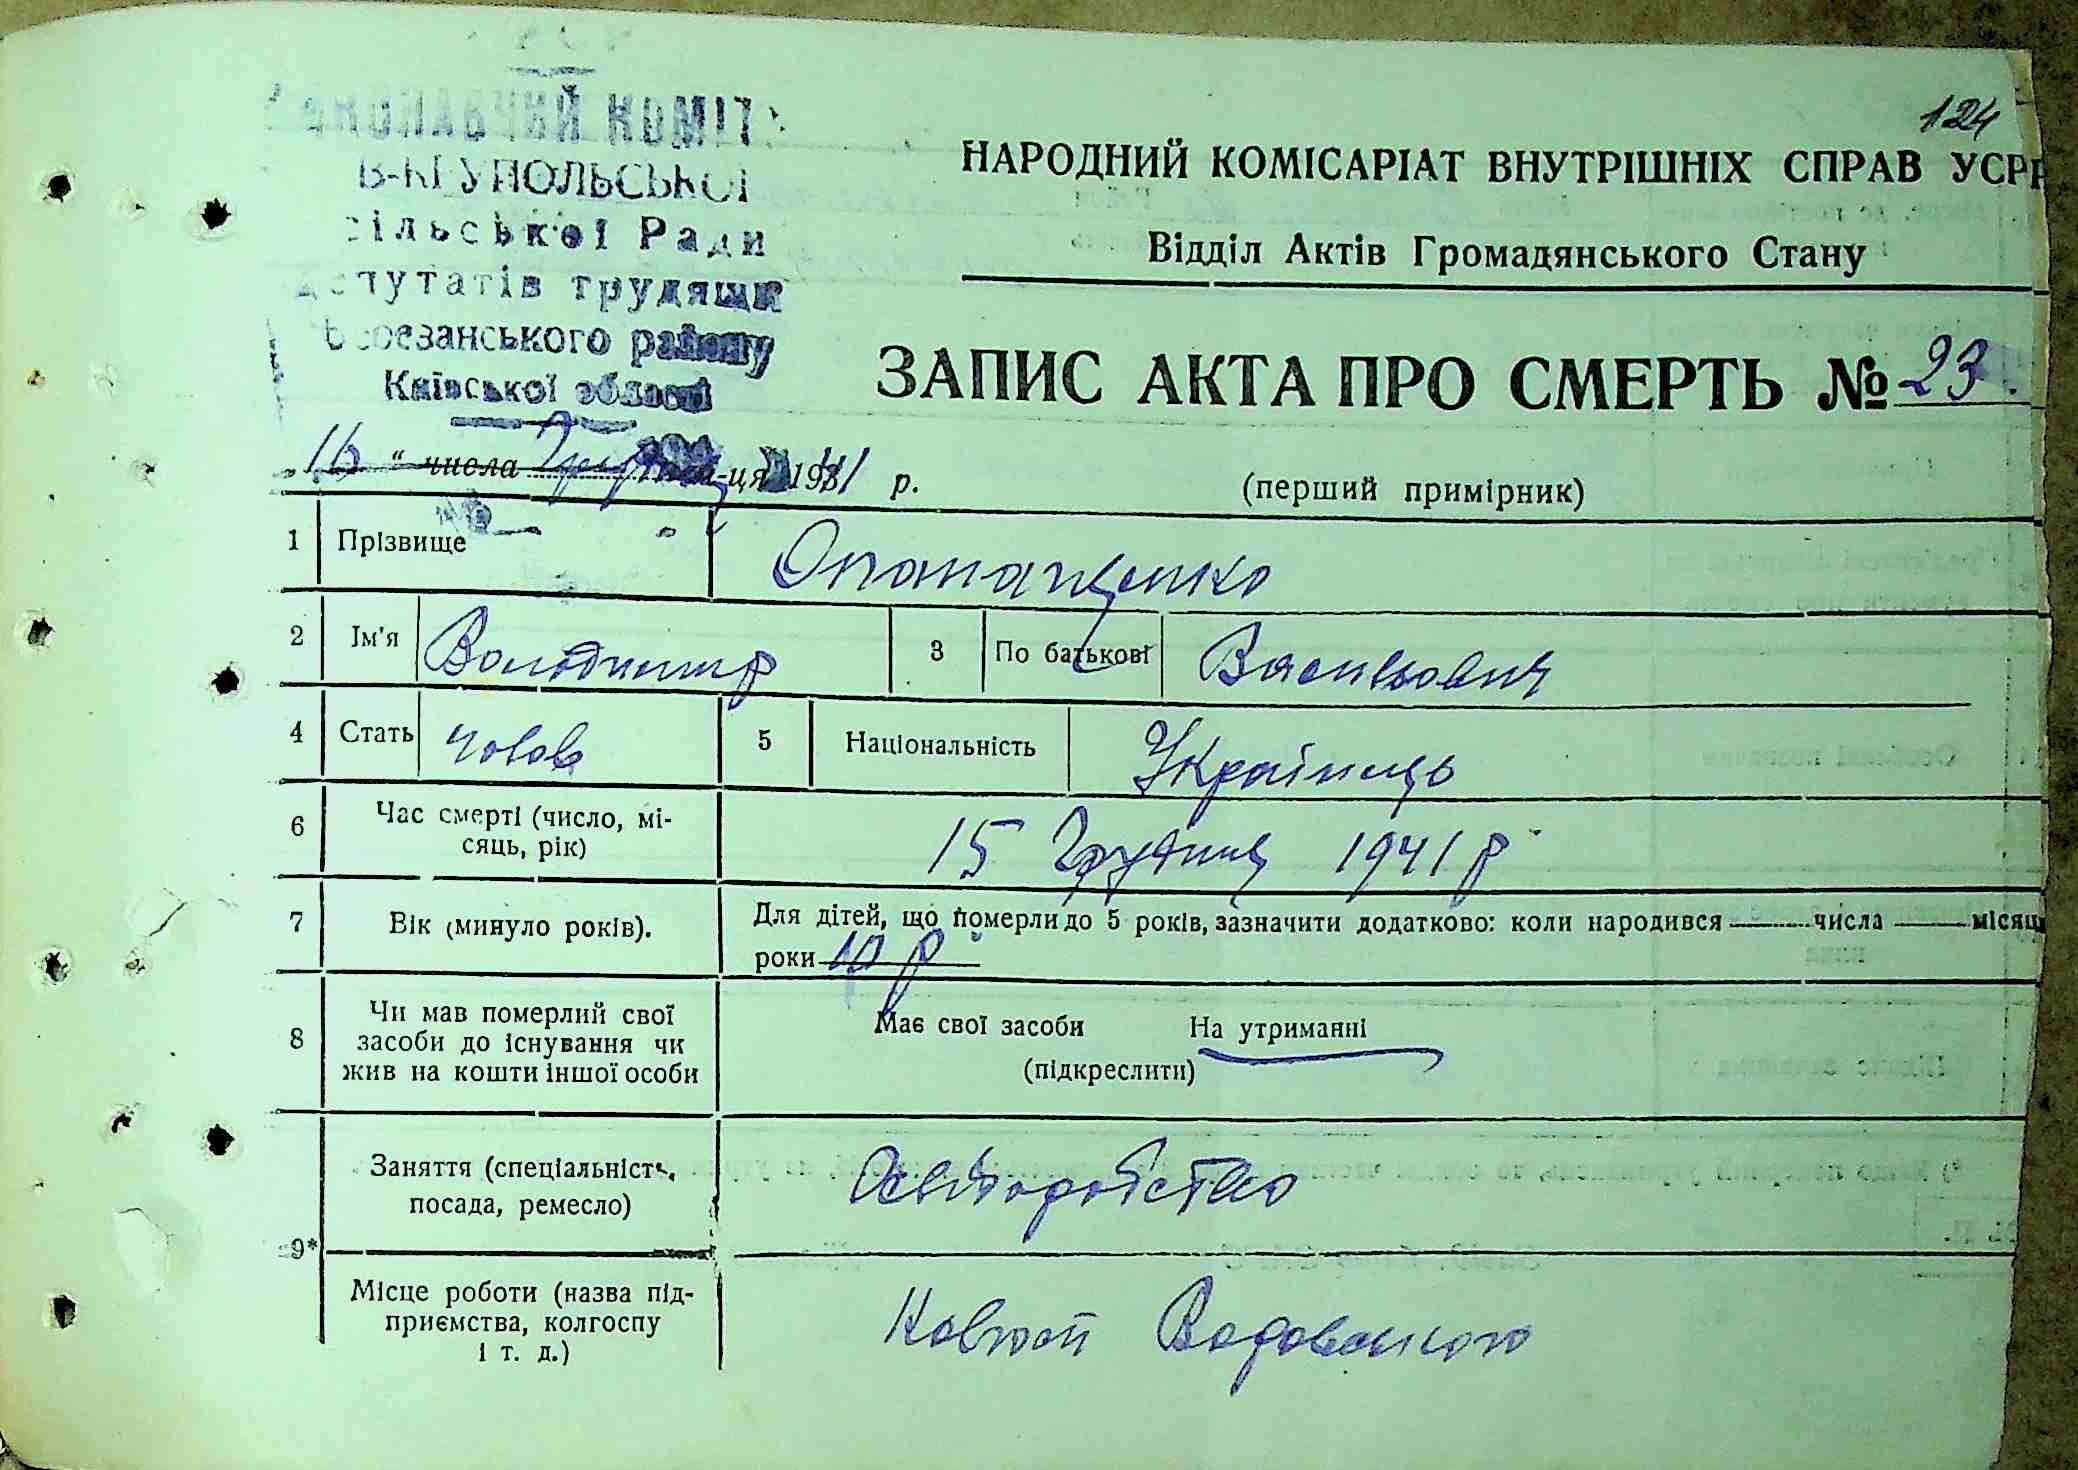 124
НАРОДНИЙ КОМІСАРІАТ ВНУТРІШНІХ СПРАВ УСРР
Відділ Актів Громадянського Стану
В-КРУПОЛЬСЬКОЇ
сільської Ради
депутатів трудящих
Березанського району
Київської області
ЗАПИС АКТА ПРО СМЕРТЬ № 23
„16 “ числа Грудня м-ця 1941 р.
(перший примірник)
1 Прізвище Опанащенко
2 Ім'я Володимир 3 По батькові Васильович
4 Стать чолов 5 Національність Українець
6 Час смерті (число, мі-
сяць, рік) 15 Грудня 1941 р
7 Вік (минуло років). Для дітей, що померли до 5 років, зазначити додатково: коли народився числа місяця
роки р
8 Чи мав померлий свої
засоби до існування чи
жив на кошти іншої особи
Має свої засоби На утриманні
(підкреслити)
9* Заняття (спеціальність,
посада, ремесло)
Місце роботи (назва під-
приємства, колгоспу
і т. д.)